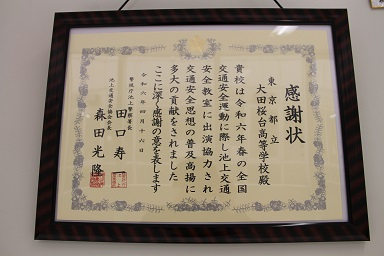 感謝状
東京都立
大田桜台高等学校殿
貴校は令和六年春の全国
交通安全運動に際し池上交通
安全教室に出演協力され
交通安全思想の普及高揚に
多大の貢献をされました
ここに深く感謝の意を表します
令和六年四月十六日
警視庁池上警察署長
田口寿
池上交通安全協会会長
森田光隆